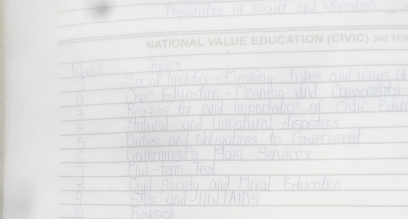 Preparation of Result and Vacation
NATIONAL VALUE EDUCATION (CIVIC) 3rd TER
Topics
1 Social Injustice - Meaning, types and ways of
2 Civic Education - Meaning and Components
3 Reasons for and importance of Civic Edu
4 Natural and unnatural disasters
5 Duties and Obligations to Government
6 Government's Main Services
7 Mid-term Test
8 Civil Society and Moral Education
9 STIs and HIV/AIDS
10 Revision